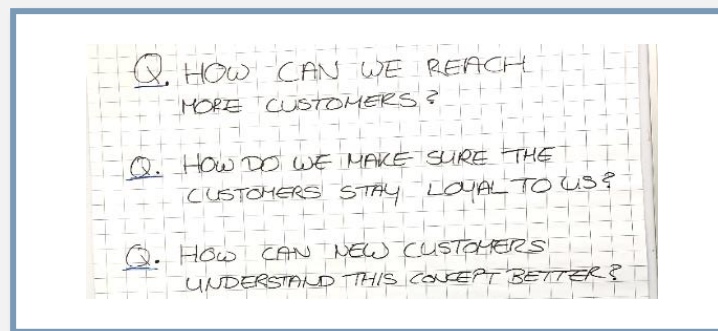 Q. HOW CAN WE REACH
MORE CUSTOMERS?
Q. HOW DO WE MAKE SURE THE
CUSTOMERS STAY LOYAL TO US?
Q. HOW CAN NEW CUSTOMERS
UNDERSTAND THIS CONCEPT BETTER?